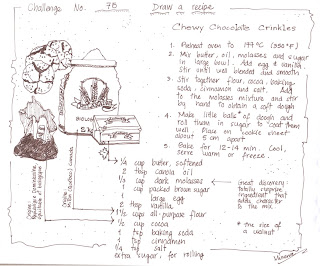 Challenge No. 78 Draw a recipe
Chewy Chocolate Crinkles
1. Preheat oven to 177°C (350°F)
2. Mix butter, oil, molasses and sugar
in large bowl. Add egg & vanilla
Stir until well blended and smooth
3. Stir together flour, cocoa, baking
soda, cinnamon and salt. Add
to the molasses mixture and stir
by hand to obtain a soft dough
4. Make little balls* of dough and
roll them in sugar to coat them
well. Place on cookie sheet
about 5 cm apart
5. Bake for 12-14 min. Cool,
serve warm or freeze.
¼ cup butter, softened
2 tbsp canola oil
¼ cup dark molasses
1 cup packed brown sugar
1 large egg
2 tsp vanilla
1½ cups all-purpose flour
½ cup cocoa
1 tsp baking soda
1 tsp cinnamon
¼ tsp salt
extra sugar, for rolling
Great discovery:
totally require
ingredient that
adds character
to the mix
* the size of
a walnut